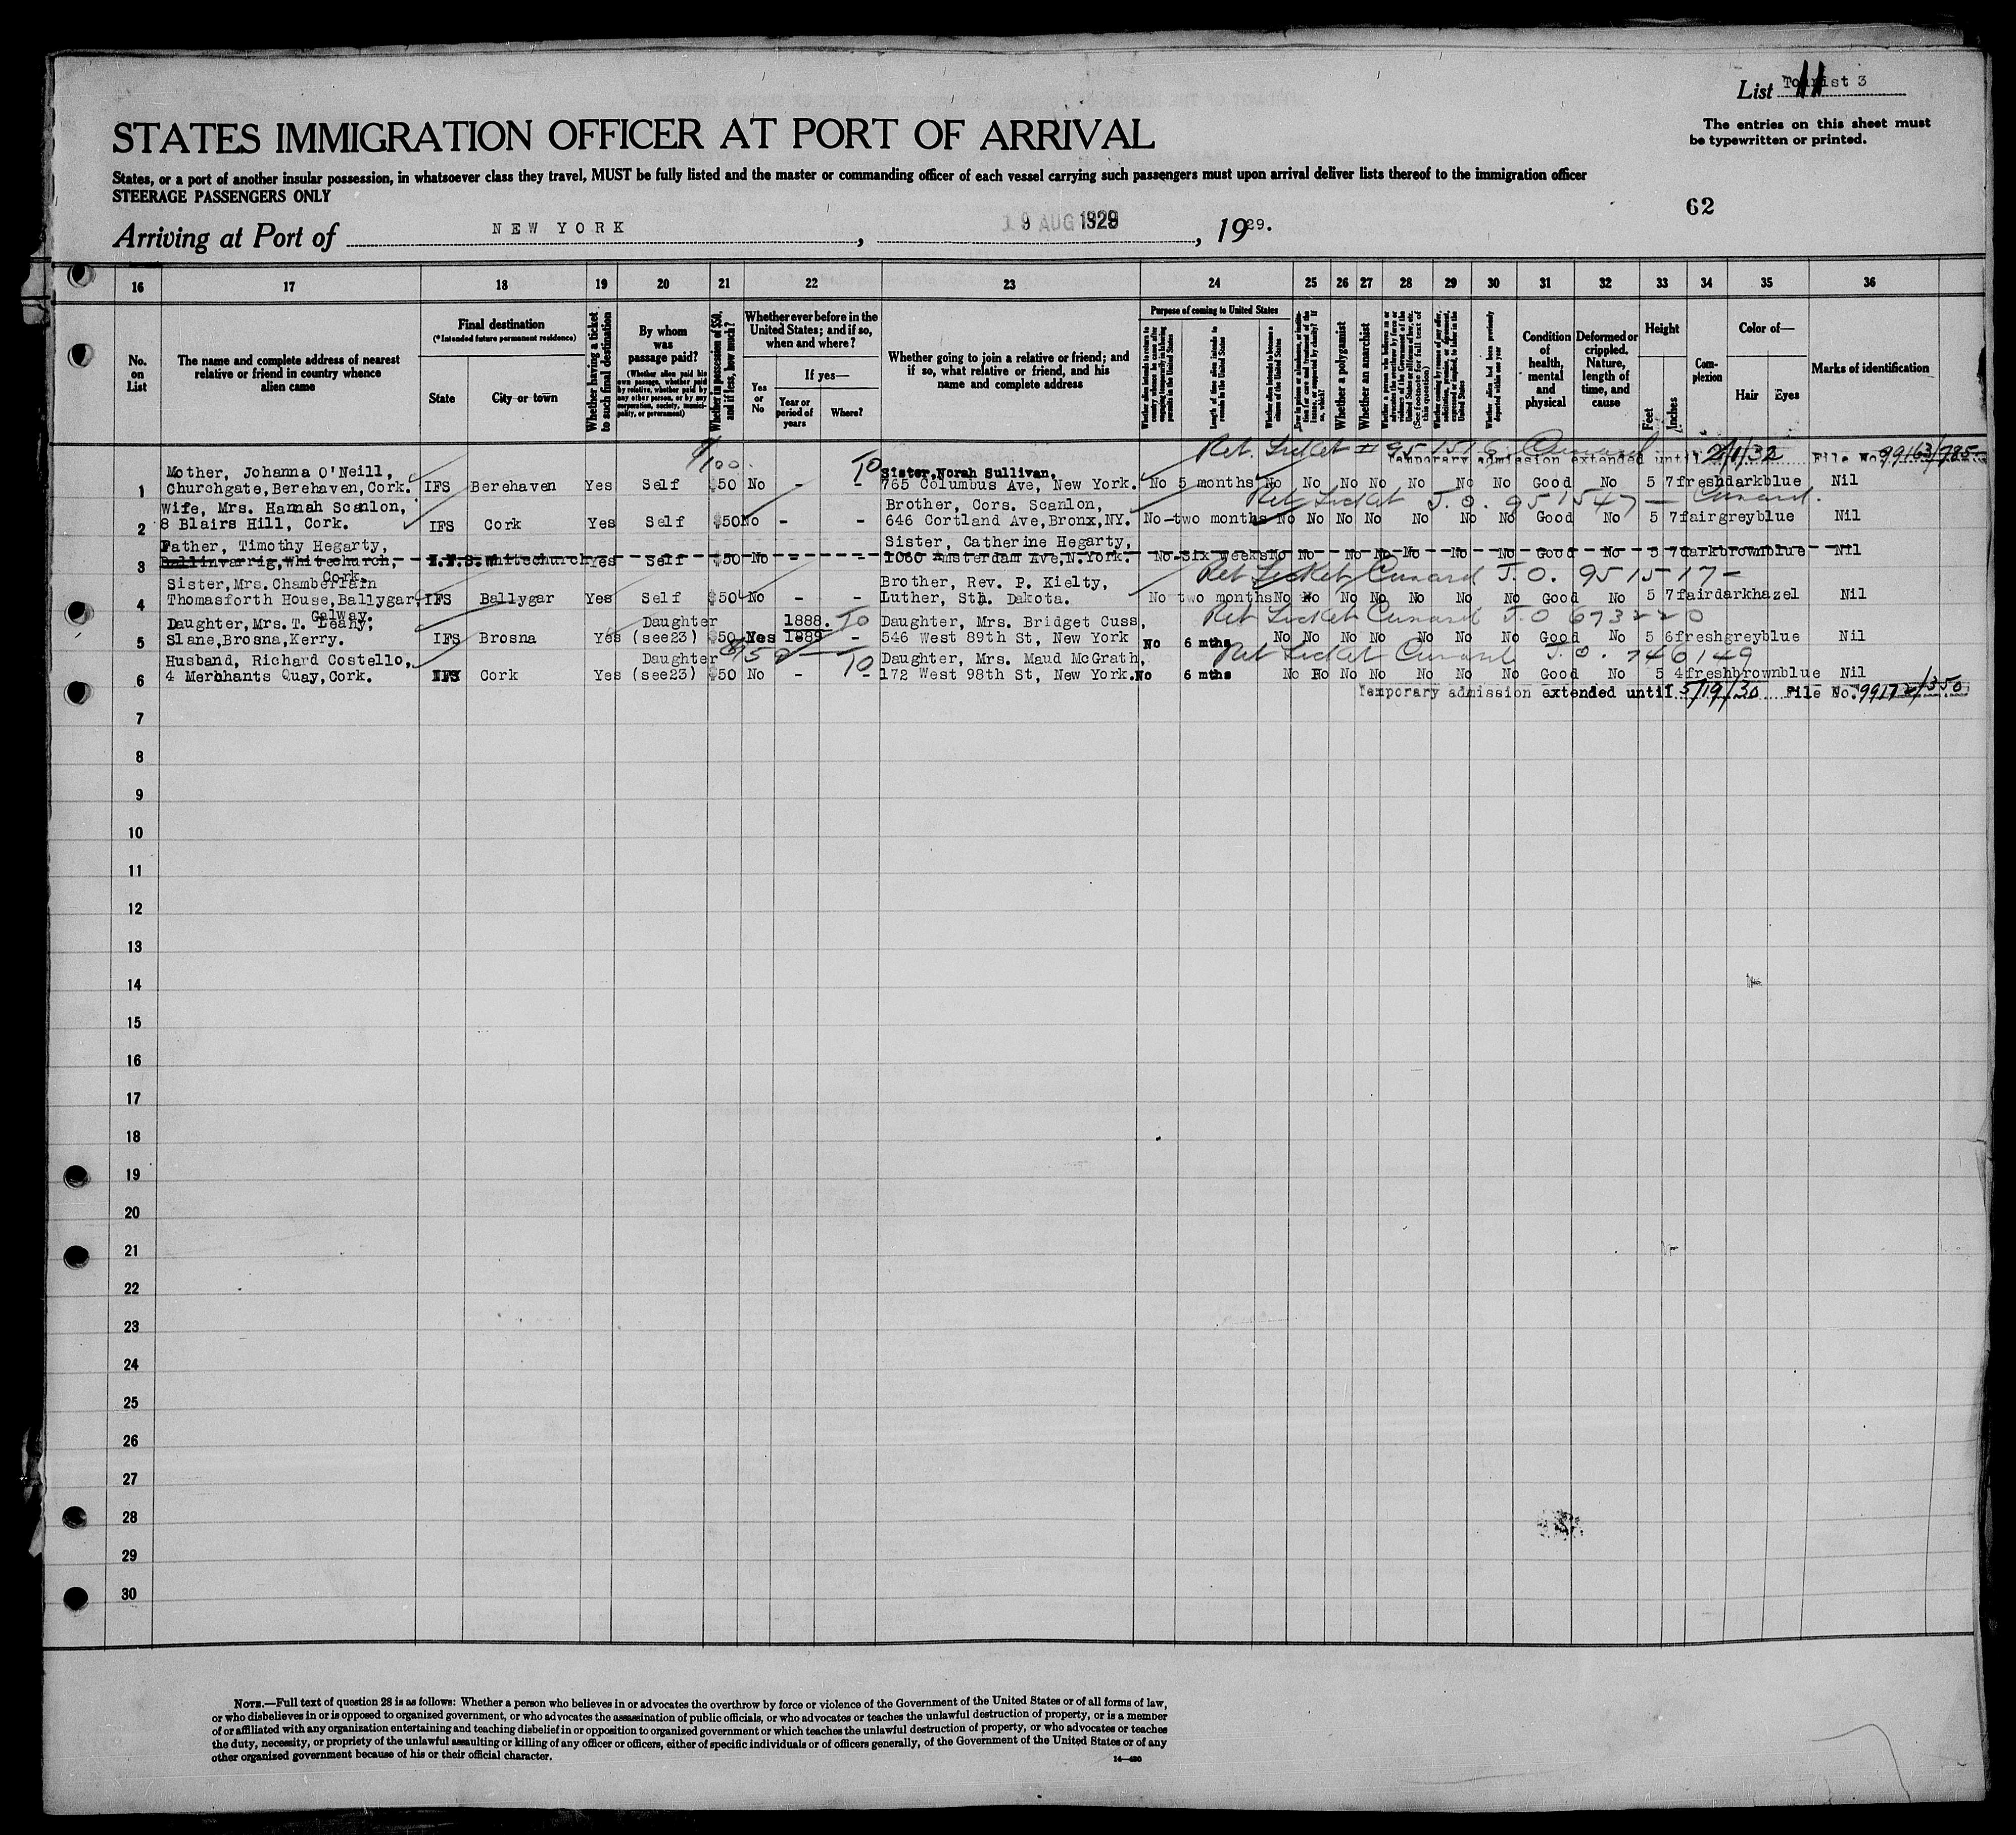 List Tourist 3
11
STATES IMMIGRATION OFFICER AT PORT OF ARRIVAL
The entries on this sheet must
be typewritten or printed.
States, or a port of another insular possession, in whatsoever class they travel, MUST be fully listed and the master or commanding officer of each vessel carrying such passengers must upon arrival deliver lists thereof to the immigration officer
STEERAGE PASSENGERS ONLY
62
Arriving at Port of NEW YORK, 19 AUG 1929, 1929.
16 17 18 19 20 21 22 23 24 25 26 27 28 29 30 31 32 33 34 35 36
No. on List
The name and complete address of nearest relative or friend in country whence alien came
Final destination
(*Intended future permanent residence)
State
City or town
Whether having a ticket to such final destination
By whom was passage paid?
(Whether alien paid his own passage, whether paid by relative, whether paid by any other person, or by any corporation, society, municipality, or government)
Whether in possession of $50, and if less, how much?
Whether ever before in the United States; and if so, when and where?
Yes or No
If yes—
Year or period of years
Where?
Whether going to join a relative or friend; and if so, what relative or friend, and his name and complete address
Purpose of coming to United States
Length of time alien intends to remain in the United States
Whether alien intends to become a citizen of the United States
Whether a polygamist
Whether an anarchist
Condition of health, mental and physical
Deformed or crippled. Nature, length of time, and cause
Height
Feet
Inches
Complexion
Color of—
Hair
Eyes
Marks of identification
100. TO Ret. Ticket Cunard
Temporary admission extended until 2/1/32 File No. 99163/785
Mother, Johanna O'Neill, Sister, Norah Sullivan,
1 Churchgate, Berehaven, Cork. IFS Berehaven Yes Self $50 No - - 765 Columbus Ave, New York. No 5 months No No No No No No No Good No 5 7 fresh dark blue Nil
Ret Ticket J.O. 951547 — Cunard.
Wife, Mrs. Hannah Scanlon, Brother, Cors. Scanlon,
2 8 Blairs Hill, Cork. IFS Cork Yes Self $50 No - - 646 Cortland Ave, Bronx, NY. No two months No No No No No No No Good No 5 7 fair grey blue Nil
Father, Timothy Hegarty, Sister, Catherine Hegarty,
3 Ballinvarrig, Whitechurch, Cork. I.F.S. Whitechurch Yes Self $50 No - - 1060 Amsterdam Ave, N.York. No Six weeks No No No No No No No Good No 5 7 dark brown blue Nil
Ret Ticket Cunard J.O. 951517 -
Sister, Mrs. Chamberlain Brother, Rev. P. Kielty,
4 Thomasforth House, Ballygar, Galway. IFS Ballygar Yes Self $50 No - - Luther, Sth. Dakota. No two months No No No No No No No Good No 5 7 fair dark hazel Nil
Ret Ticket Cunard J.O 673220
Daughter, Mrs. T. Leahy, Daughter 1888. TO Daughter, Mrs. Bridget Cuss,
5 Slane, Brosna, Kerry. IFS Brosna Yes (see23) $50 Yes 1889 - 546 West 89th St, New York No 6 mths No No No No No No No Good No 5 6 fresh grey blue Nil
Ret Ticket Cunard J.O. 746149
Husband, Richard Costello, Daughter TO Daughter, Mrs. Maud McGrath,
6 4 Merchants Quay, Cork. IFS Cork Yes (see23) $50 No - - 172 West 98th St, New York. No 6 mths No No No No No No No Good No 5 4 fresh brown blue Nil
Temporary admission extended until 5/19/30 File No. 99172/350
7
8
9
10
11
12
13
14
15
16
17
18
19
20
21
22
23
24
25
26
27
28
29
30
NOTE.—Full text of question 28 is as follows: Whether a person who believes in or advocates the overthrow by force or violence of the Government of the United States or of all forms of law,
or who disbelieves in or is opposed to organized government, or who advocates the assassination of public officials, or who advocates or teaches the unlawful destruction of property, or is a member
of or affiliated with any organization entertaining and teaching disbelief in or opposition to organized government or which teaches the unlawful destruction of property, or who advocates or teaches
the duty, necessity, or propriety of the unlawful assaulting or killing of any officer or officers, either of specific individuals or of officers generally, of the Government of the United States or of any
other organized government because of his or their official character.
14—480